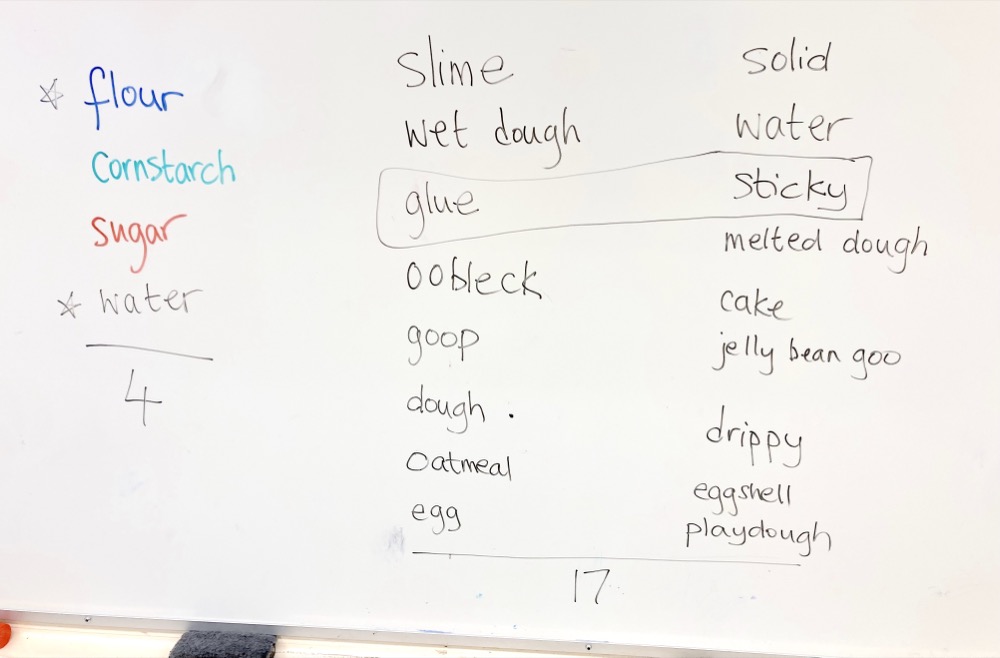 ☆ flour
Cornstarch
sugar
☆ water
4
slime
wet dough
glue
oobleck
goop
dough .
oatmeal
egg
solid
water
sticky
melted dough
cake
jelly bean goo
drippy
eggshell
playdough
17